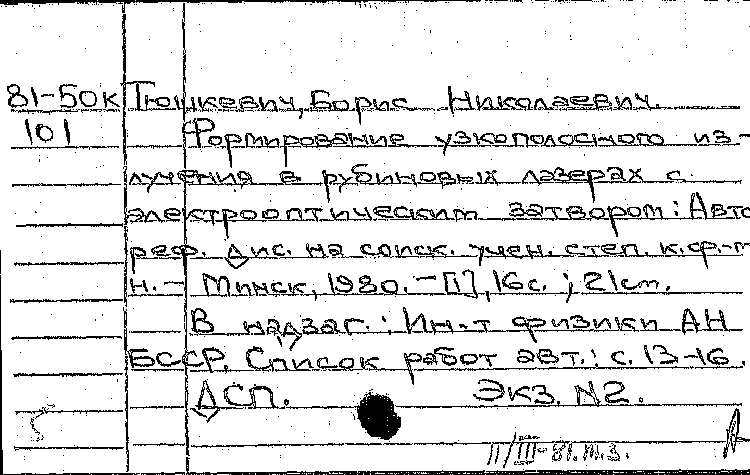 81-50к Тюшкевич, Борис Николаевич.
101 Формирование узкополосного из-
лучения в рубиновых лазерах с
электрооптическим затвором: Авто
реф. дис. на соиск. учен. степ. к.ф.-м
н. - Минск, 1980. - [1], 16с. ; 21см.
В надзаг.: Ин-т физики АН
БССР. Список работ авт.: с. 13-16.
ДСП. Экз. N2.
II/III-81.м.з.